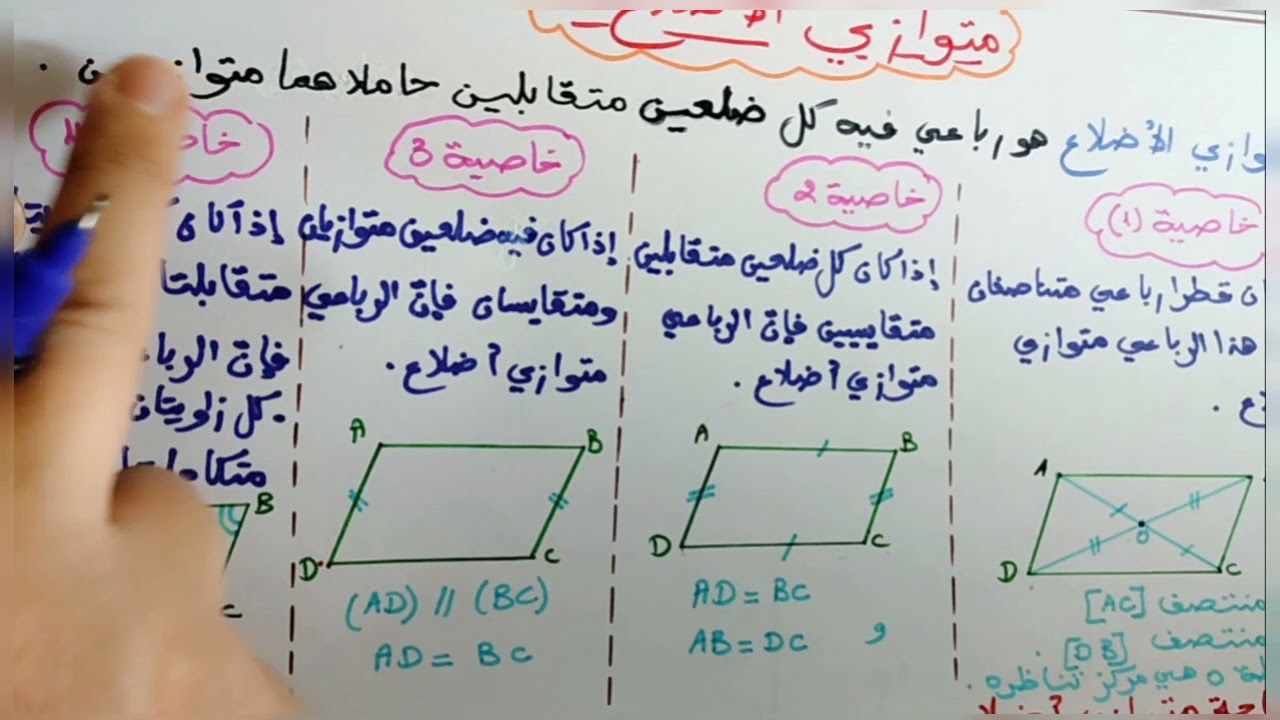 متوازي
وازي الأضلاع هو رباعي فيه كل ضلعين متقابلين حاملاهما
خاصية (1)
ان قطرا رباعي متناصفان
هذا الرباعي متوازي
A
D
C
O
منتصف [AC]
منتصف [DB]
هي مركز تناظره.
خاصية 2
إذا كان كل ضلعين متقابلين
متقايسين فإن الرباعي
متوازي أضلاع.
A
B
D
C
AD = BC
و
AB = DC
خاصية 3
إذا كان فيه ضلعين متوازيان
ومتقايسان فإن الرباعي
متوازي أضلاع.
A
B
D
C
(AD) // (BC)
AD = BC
إذا كان
فإن
كل زاويتان
B
C